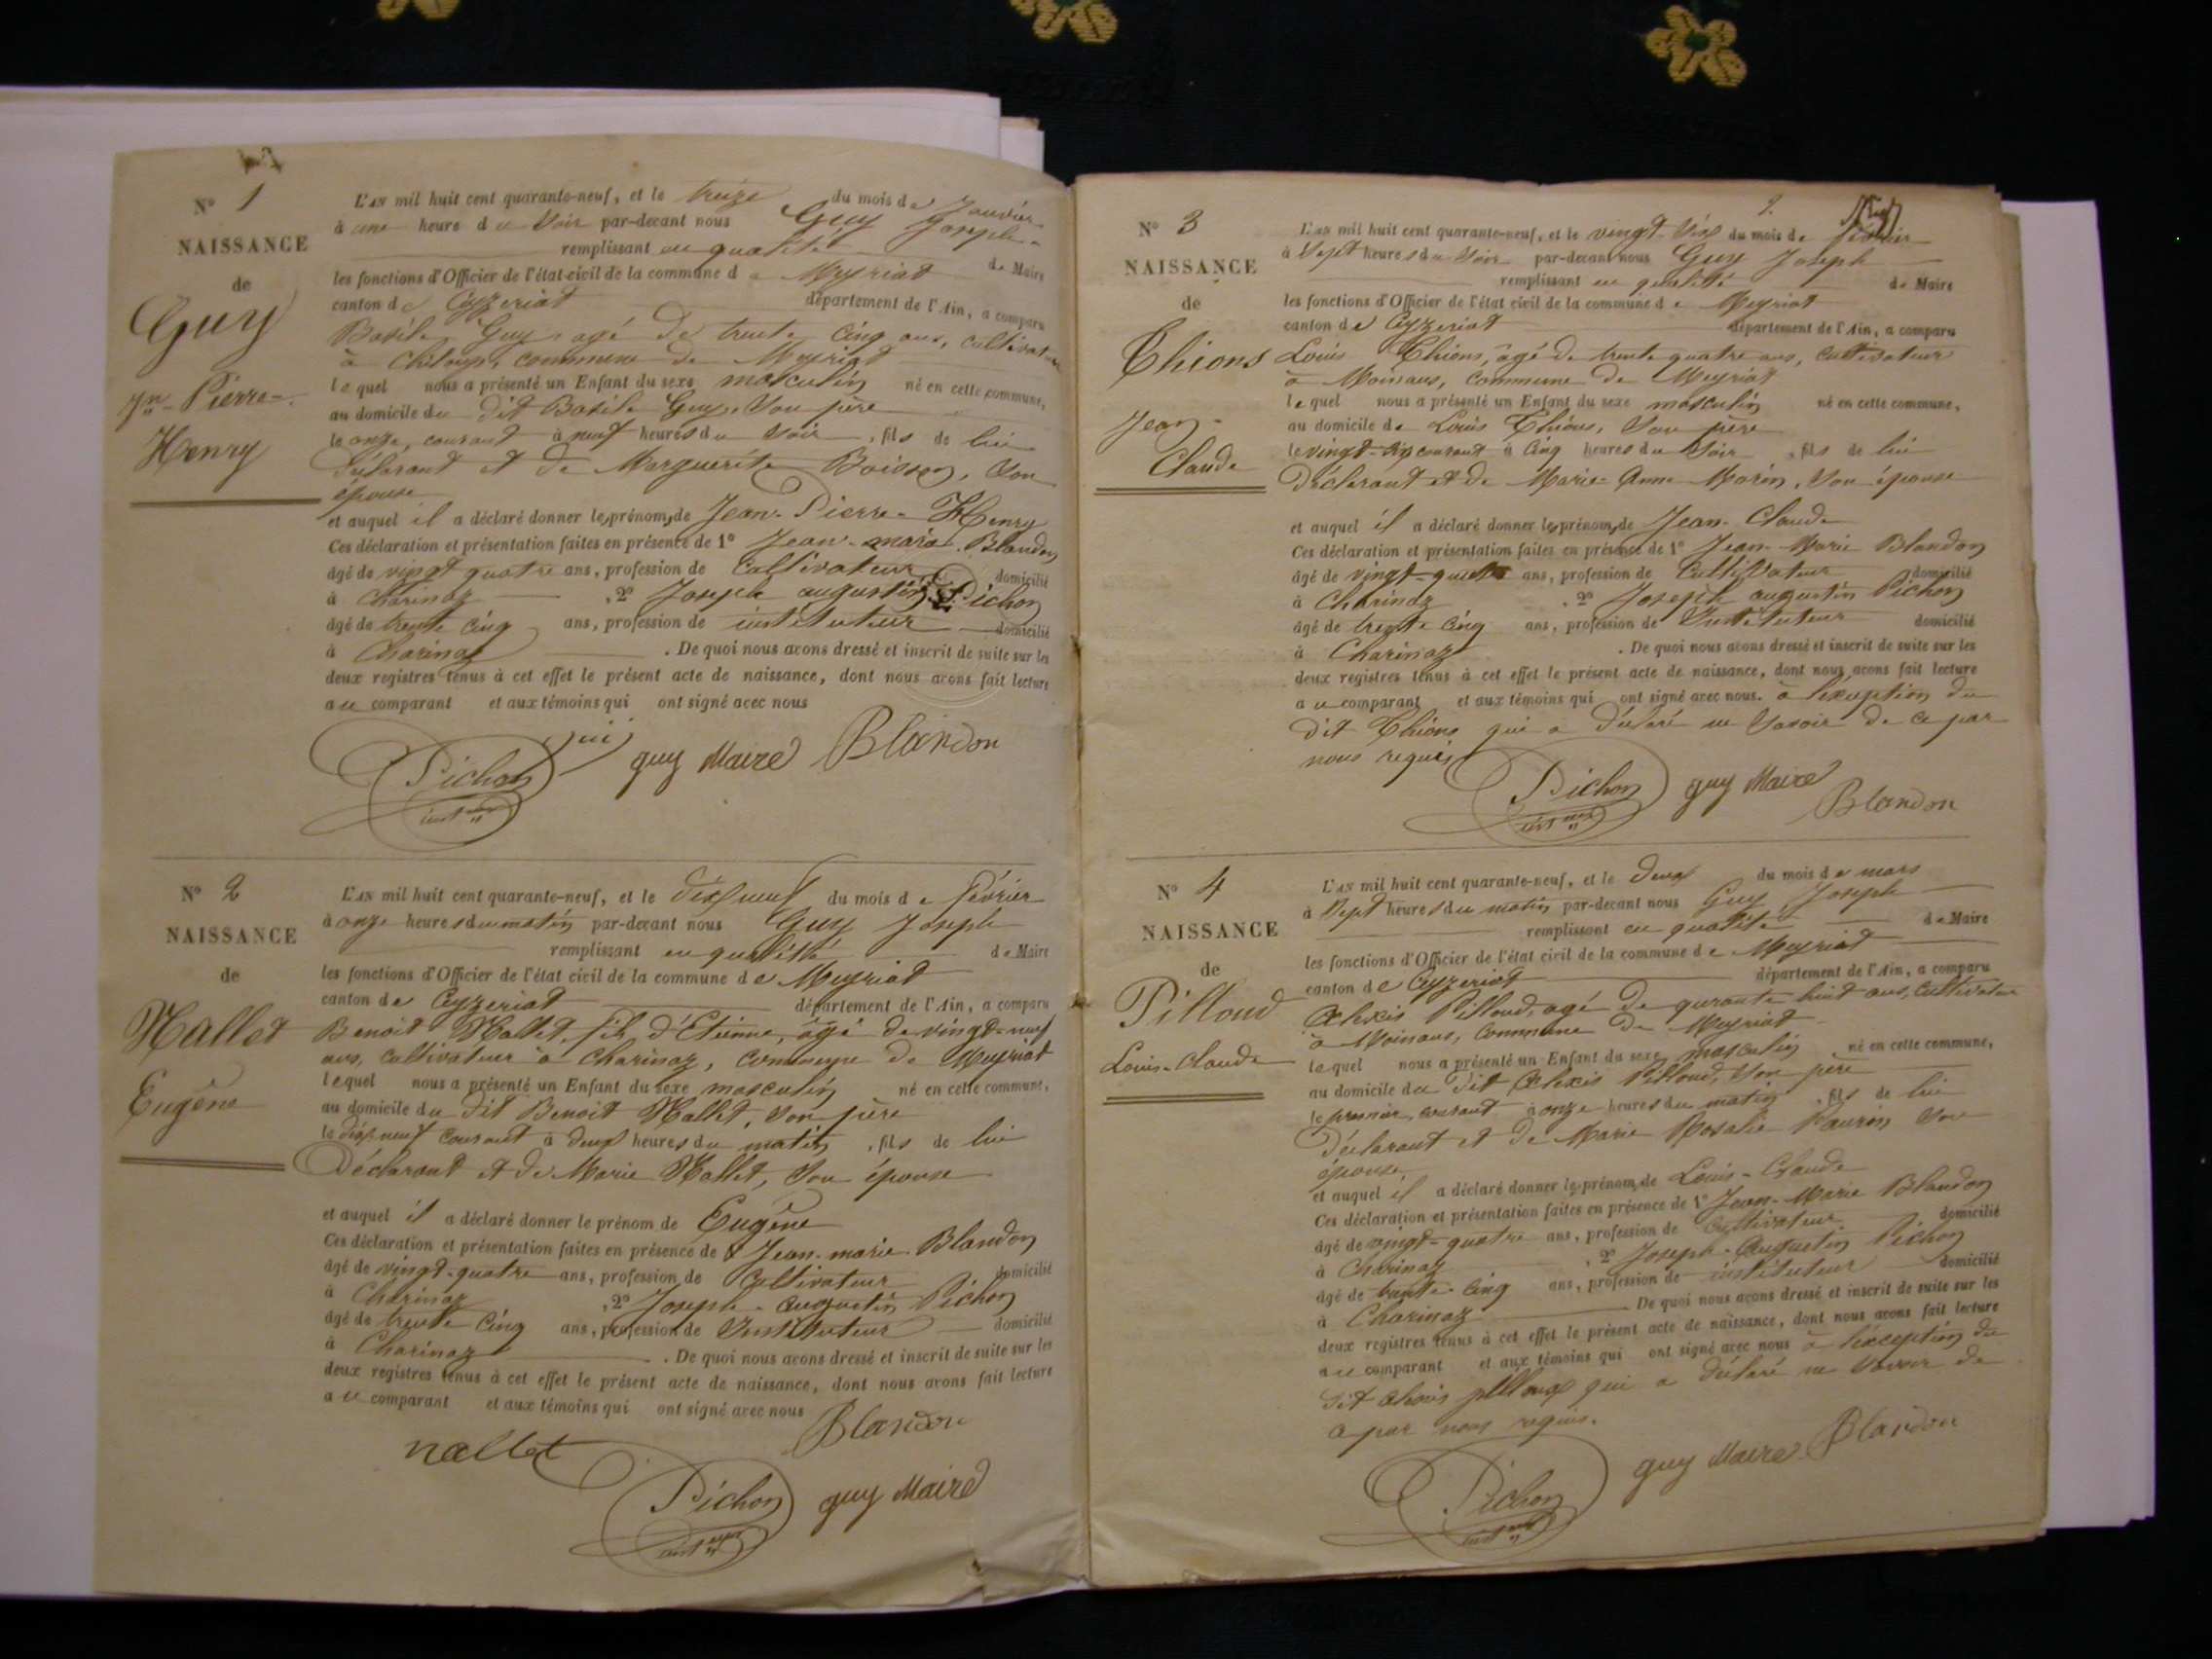 N° 1
NAISSANCE
de
Guy
Jn Pierre
Henry
L'AN mil huit cent quarante-neuf, et le treize du mois de Janvier
à une heure du soir par-devant nous Guy Joseph
remplissant en qualité de Maire
les fonctions d'Officier de l'état-civil de la commune de Meyriat
canton de Ceyzeriat département de l'Ain, a comparu
Basile Guy, agé de trente cinq ans, cultivateur
à Chiloup, commune de Meyriat
lequel nous a présenté un Enfant du sexe masculin né en cette commune,
au domicile du dit Basile Guy, son père
le onze, courant à neuf heures du soir, fils de lui
Déclarant et de Marguerite Boisson, son
épouse
et auquel il a déclaré donner les prénoms de Jean-Pierre-Henry
Ces déclaration et présentation faites en présence de 1° Jean-marie Blandon
âgé de vingt quatre ans, profession de Cultivateur domicilié
à Charinaz , 2° Joseph augustin Pichon
âgé de trente cinq ans, profession de instituteur domicilié
à Charinaz . De quoi nous avons dressé et inscrit de suite sur les
deux registres tenus à cet effet le présent acte de naissance, dont nous avons fait lecture
au comparant et aux témoins qui ont signé avec nous
Pichon guy Maire Blandon
N° 2
NAISSANCE
de
Nallet
Eugêne
L'AN mil huit cent quarante-neuf, et le dixneuf du mois de février
à onze heures du matin par-devant nous Guy Joseph
remplissant en qualité de Maire
les fonctions d'Officier de l'état civil de la commune de Meyriat
canton de Ceyzeriat département de l'Ain, a comparu
Benoit Nallet, fils d'Etienne, âgé de vingt-neuf
ans, cultivateur à Charinaz, commune de Meyriat
lequel nous a présenté un Enfant du sexe masculin né en cette commune,
au domicile du dit Benoit Nallet, son père
le dixneuf courant à deux heures du matin, fils de lui
Déclarant et de Marie Nallet, son épouse
et auquel il a déclaré donner le prénom de Eugêne
Ces déclaration et présentation faites en présence de 1° Jean-marie Blandon
âgé de vingt-quatre ans, profession de Cultivateur domicilié
à Charinaz , 2° Joseph-augustin Pichon
âgé de trente cinq ans, profession de Instituteur domicilié
à Charinaz . De quoi nous avons dressé et inscrit de suite sur les
deux registres tenus à cet effet le présent acte de naissance, dont nous avons fait lecture
au comparant et aux témoins qui ont signé avec nous
nallet Blandon
Pichon guy Maire
2.
N° 3
NAISSANCE
de
Thions
Jean-
Claude
L'AN mil huit cent quarante-neuf, et le vingt-six du mois de février
à sept heures du soir par-devant nous Guy Joseph
remplissant en qualité de Maire
les fonctions d'Officier de l'état civil de la commune de Meyriat
canton de Ceyzeriat département de l'Ain, a comparu
Louis Thions, âgé de trente quatre ans, cultivateur
à Moinans, commune de Meyriat
lequel nous a présenté un Enfant du sexe masculin né en cette commune,
au domicile de Louis Thions, son père
le vingt-six courant à cinq heures du soir, fils de lui
Déclarant et de Marie-Anne Morin, son épouse
et auquel il a déclaré donner les prénoms de Jean-Claude
Ces déclaration et présentation faites en présence de 1° Jean-Marie Blandon
âgé de vingt-quatre ans, profession de Cultivateur domicilié
à Charinaz , 2° Joseph augustin Pichon
âgé de trente cinq ans, profession de Instituteur domicilié
à Charinaz . De quoi nous avons dressé et inscrit de suite sur les
deux registres tenus à cet effet le présent acte de naissance, dont nous avons fait lecture
au comparant et aux témoins qui ont signé avec nous. à l'exception du
dit Thions qui a déclaré ne savoir de ce par
nous requis
Pichon guy Maire
Blandon
N° 4
NAISSANCE
de
Pilloud
Louis-Claude
L'AN mil huit cent quarante-neuf, et le deux du mois de mars
à sept heures du matin par-devant nous Guy Joseph
remplissant en qualité de Maire
les fonctions d'Officier de l'état civil de la commune de Meyriat
canton de Ceyzeriat département de l'Ain, a comparu
Alexis Pilloud, agé de quarante huit ans, cultivateur
à Moinans, commune de Meyriat
lequel nous a présenté un Enfant du sexe masculin né en cette commune,
au domicile du dit Alexis Pilloud, son père
le premier, courant à onze heures du matin, fils de lui
Déclarant et de Marie Rosalie son
épouse,
et auquel il a déclaré donner les prénoms de Louis-Claude
Ces déclaration et présentation faites en présence de 1° Jean-Marie Blandon
âgé de vingt-quatre ans, profession de cultivateur domicilié
à Charinaz , 2° Joseph-Augustin Pichon
âgé de trente-cinq ans, profession de instituteur domicilié
à Charinaz De quoi nous avons dressé et inscrit de suite sur les
deux registres tenus à cet effet le présent acte de naissance, dont nous avons fait lecture
au comparant et aux témoins qui ont signé avec nous à l'exception du
dit qui a déclaré ne savoir de
ce par nous requis.
Pichon guy Maire Blandon